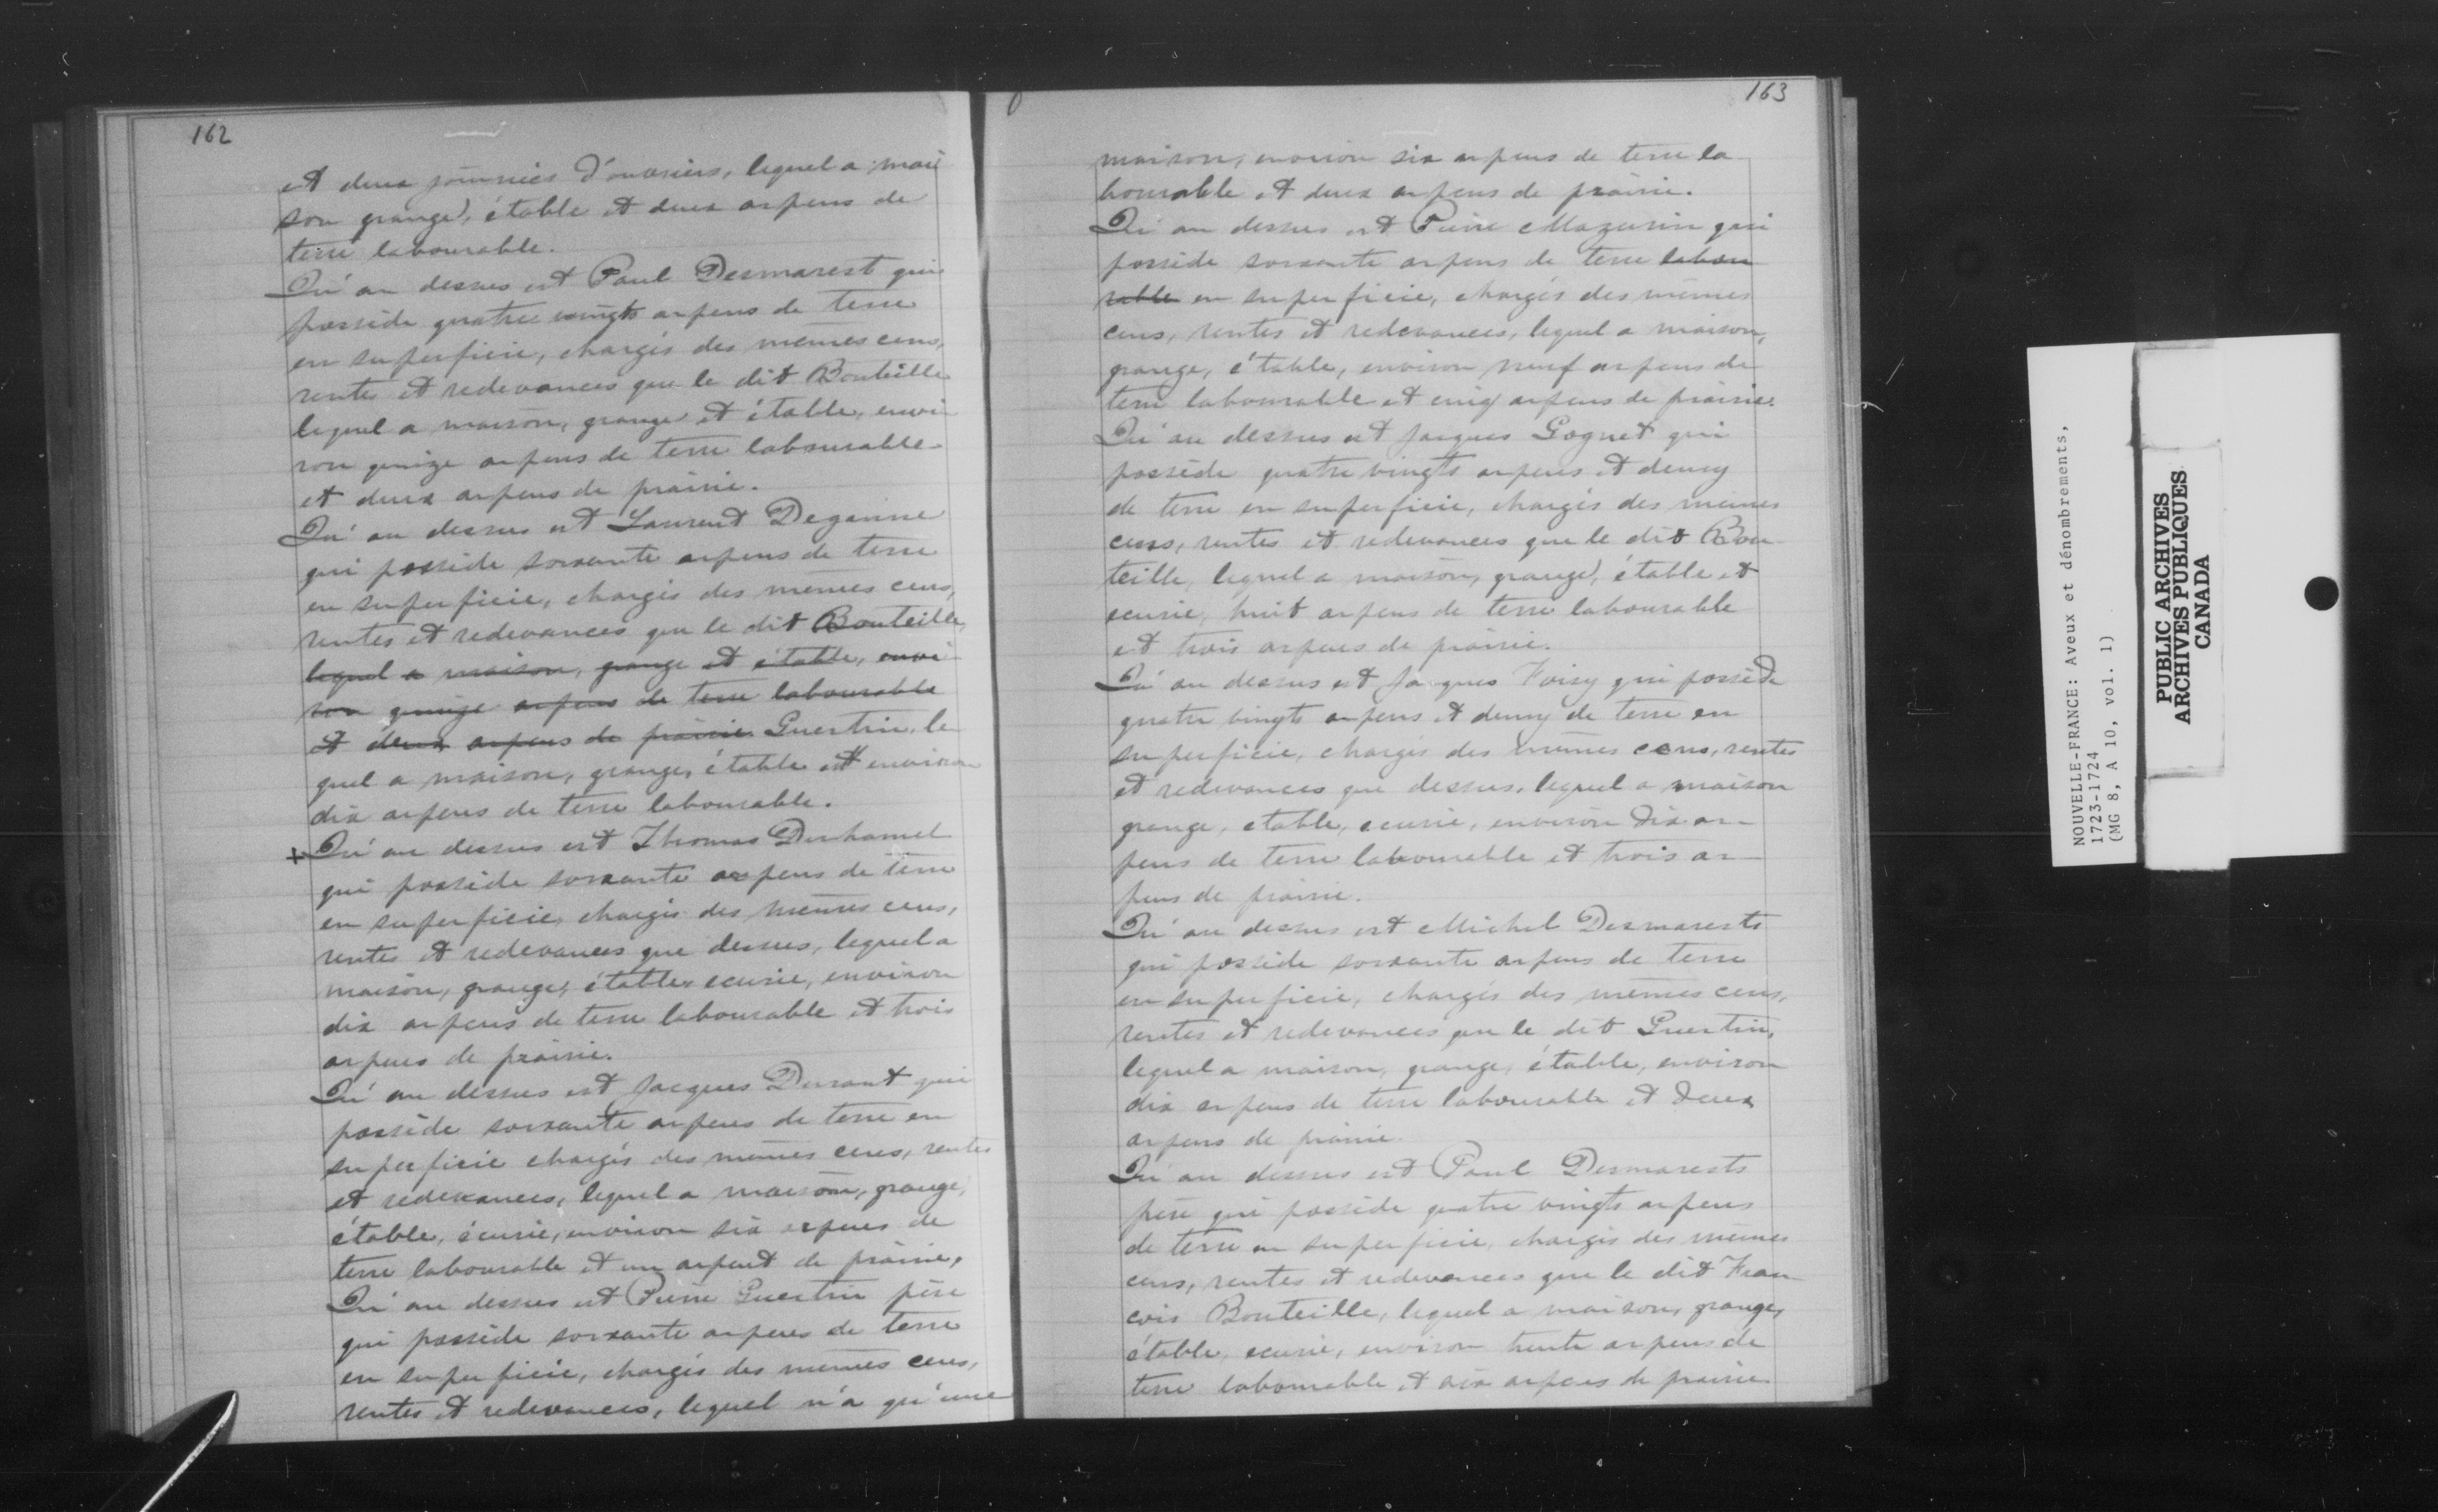 162
et deux journées d'ouvriers, lequel a mai
son grange, étable et deux arpens de
terre labourable.
Qu'au dessus est Paul Desmarest qui
possède quatre vingts arpens de terre
en superficie, chargés des mêmes cens,
rentes et redevances que le dit Bouteille
lequel a maison, grange et étable, envi
ron quinze arpens de terre labourable
et deux arpens de prairie.
Qu'au dessus est Laurent Deganne
qui possède soixante arpens de terre
en superficie, chargés des mêmes cens,
rentes et redevances que le dit Bouteille,
lequel a maison, grange et étable, envi
ron quinze arpens de terre labourable
et deux arpens de prairie Guertin, le
quel a maison, grange, étable et environ
dix arpens de terre labourable.
+ Qu'au dessus est Thomas Duhamel
qui possède soixante arpens de terre
en superficie, chargés des mêmes cens,
rentes et redevances que dessus, lequel a
maison, grange, étable, ecurie, environ
dix arpens de terre labourable et trois
arpens de prairie.
Qu'au dessus est Jacques Durant qui
possède soixante arpens de terre en
superficie chargés des mêmes cens, rentes
et redevances, lequel a maison, grange,
étable, écurie, environ six arpens de
terre labourable et un arpent de prairie.
Qu'au dessus est Pierre Guertin père
qui possède soixante arpens de terre
en superficie, chargés des mêmes cens,
rentes et redevances, lequel n'a qu'une
163
maison, environ six arpens de terre la
bourable et deux arpens de prairie.
Qu'au dessus est Pierre Mazurin qui
possède soixante arpens de terre labou
rable en superficie, chargés des mêmes
cens, rentes et redevances, lequel a maison,
grange, étable, environ neuf arpens de
terre labourable et cinq arpens de prairie.
Qu'au dessus est Jacques Gognet qui
possède quatre vingts arpens et demy
de terre en superficie, chargés des mêmes
cens, rentes et redevances que le dit Bou
teille, lequel a maison, grange, étable et
ecurie, huit arpens de terre labourable
et trois arpens de prairie.
Qu'au dessus est Jacques Foisy qui possède
quatre vingts arpens et demy de terre en
superficie, chargés des mêmes cens, rentes
et redevances que dessus, lequel a maison
grange, etable, ecurie, environ dix ar-
pens de terre labourable et trois ar-
pens de prairie.
Qu'au dessus est Michel Desmarests
qui possède soixante arpens de terre
en superficie, chargés des mêmes cens,
rentes et redevances que le dit Guertin,
lequel a maison, grange, étable, environ
dix arpens de terre labourable et deux
arpens de prairie.
Qu'au dessus est Paul Desmarests
père qui possède quatre vingts arpens
de terre en superficie, chargés des mêmes
cens, rentes et redevances que le dit Fran
cois Bouteille, lequel a maison, grange,
étable, ecurie, environ trente arpens de
terre labourable et six arpens de prairie
NOUVELLE-FRANCE: Aveux et dénombrements,
1723-1724
(MG 8, A 10, vol. 1)
PUBLIC ARCHIVES
ARCHIVES PUBLIQUES
CANADA